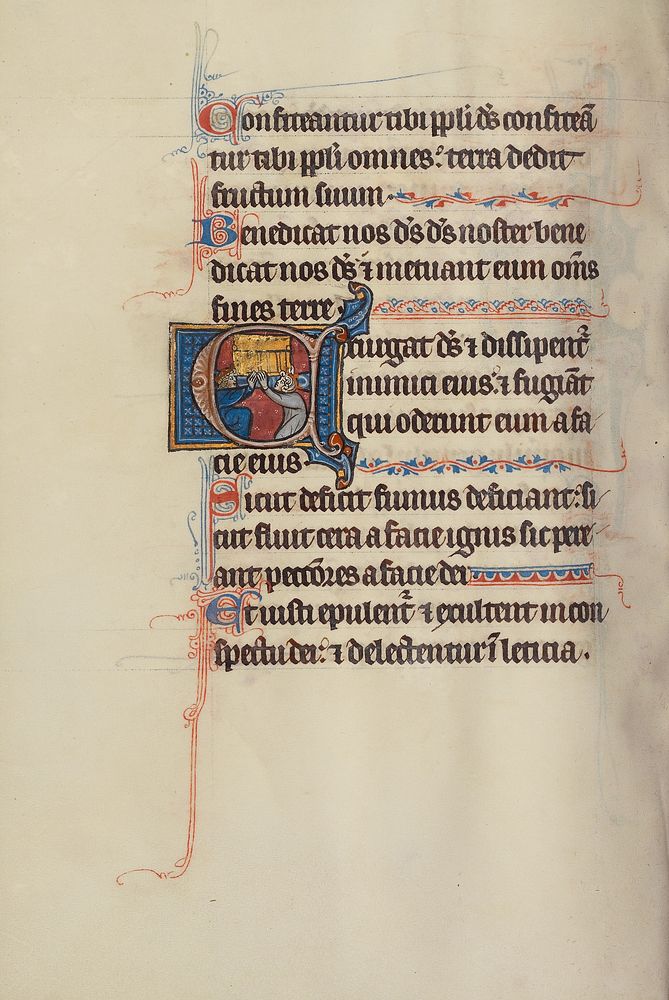 Confiteantur tibi ppli ds confiteā
tur tibi ppli omnes: terra dedit
fructum suum.
Benedicat nos ds ds noster bene
dicat nos ds ⁊ metuant eum oms
fines terre.
Exurgat ds ⁊ dissipent᷑
inimici eius: ⁊ fugiāt
qui oderunt eum a fa
cie eius.
Sicut deficit fumus deficiant: si
cut fluit cera a facie ignis sic pere
ant peccōres a facie dei
Et iusti epulent᷑ ⁊ exultent in con
spectu dei: ⁊ delectentur ī leticia.